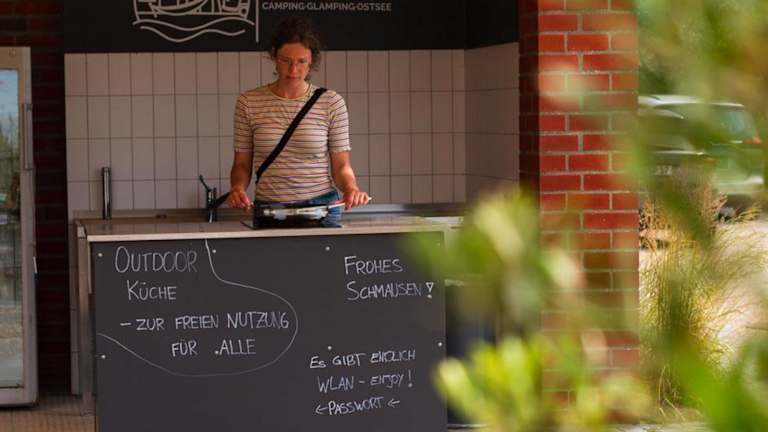 CAMPING·GLAMPING·OSTSEE
OUTDOOR
KÜCHE
- ZUR FREIEN NUTZUNG
FÜR ALLE
FROHES
SCHMAUSEN!
ES GIBT ENDLICH
WLAN - ENJOY!
←PASSWORT←